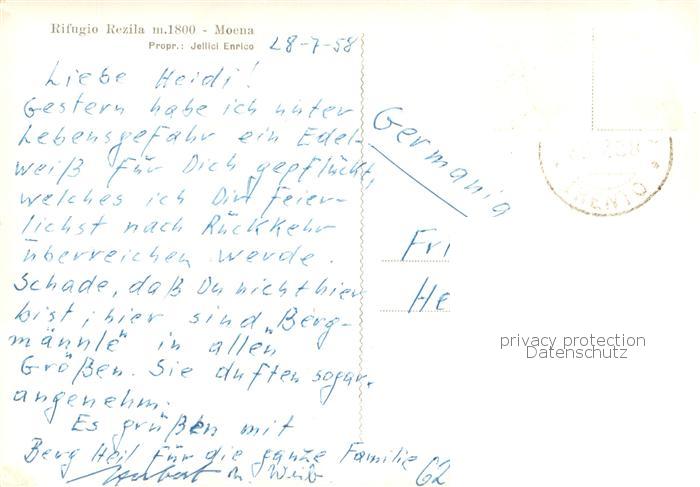 Rifugio Rezila m.1800 - Moena
Propr.: Jellici Enrico
28-7-58
Liebe Heidi!
Gestern habe ich unter
Lebensgefahr ein Edel-
weiß für Dich gepflückt,
welches ich Dir feier-
lichst nach Rückkehr
überreichen werde.
Schade, daß Du nicht hier
bist, hier sind „Berg-
männle" in allen
Größen. Sie duften sogar
angenehm.
Es grüßen mit
Berg Heil für die ganze Familie
Herbert m. Weib.
Germania
Fri
He
62
TRENTO
privacy protection
Datenschutz